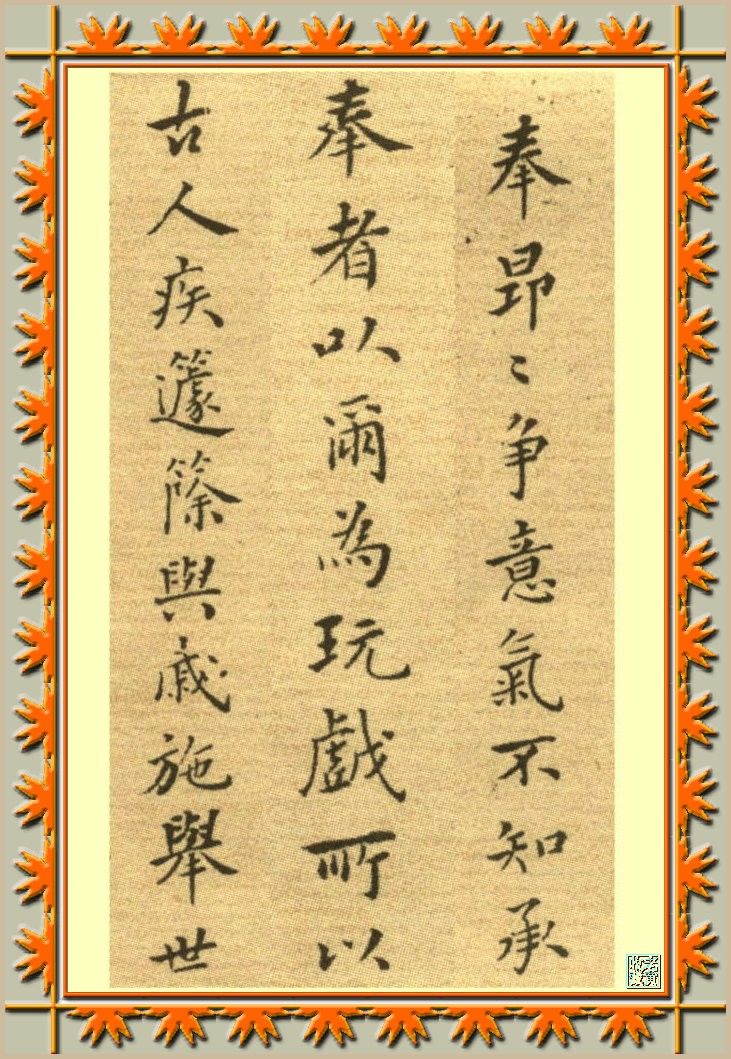 奉昂〻争意氣不知承
奉者以爾為玩戲所以
古人疾籧篨與戚施舉世